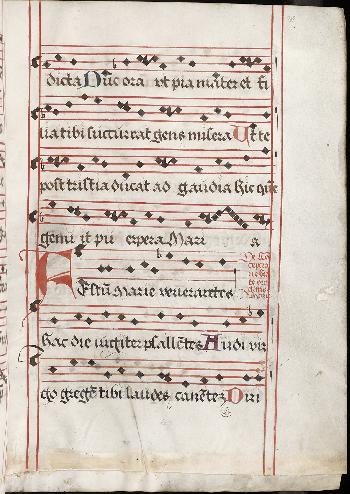 dicta Nuc orā ut pia mater et fi
lia tibi succurrat gens misera Ut te
post tristia ducat ad gaudia hic que
gemit pu erpera Mari a
Festū Marie venerantes
hac die iugiter psallētes Audi vir
go gregē tibi laudes canētez Diri